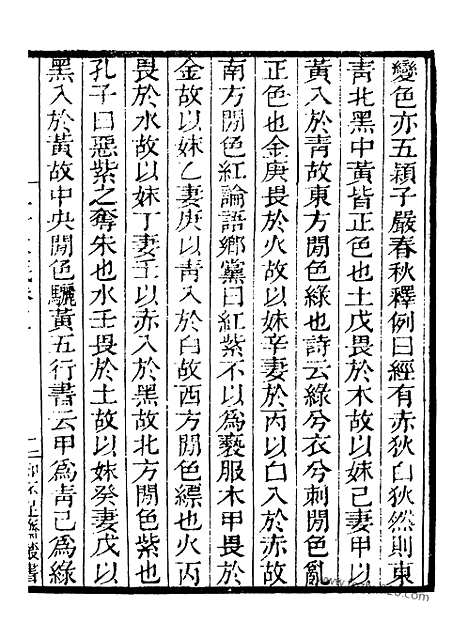 變色亦五潁子嚴春秋釋例曰經有赤狄白狄然則東
青北黑中黃皆正色也土戊畏於木故以妹己妻甲以
黃入於青故東方閒色綠也詩云綠兮衣兮刺閒色亂
正色也金庚畏於火故以妹辛妻於丙以白入於赤故
南方閒色紅論語鄉黨曰紅紫不以爲褻服木甲畏於
金故以妹乙妻庚以青入於白故西方閒色縹也火丙
畏於水故以妹丁妻壬以赤入於黑故北方閒色紫也
孔子曰惡紫之奪朱也水壬畏於土故以妹癸妻戊以
黑入於黃故中央閒色驪黃五行書云甲爲青己爲綠
知不足齋叢書